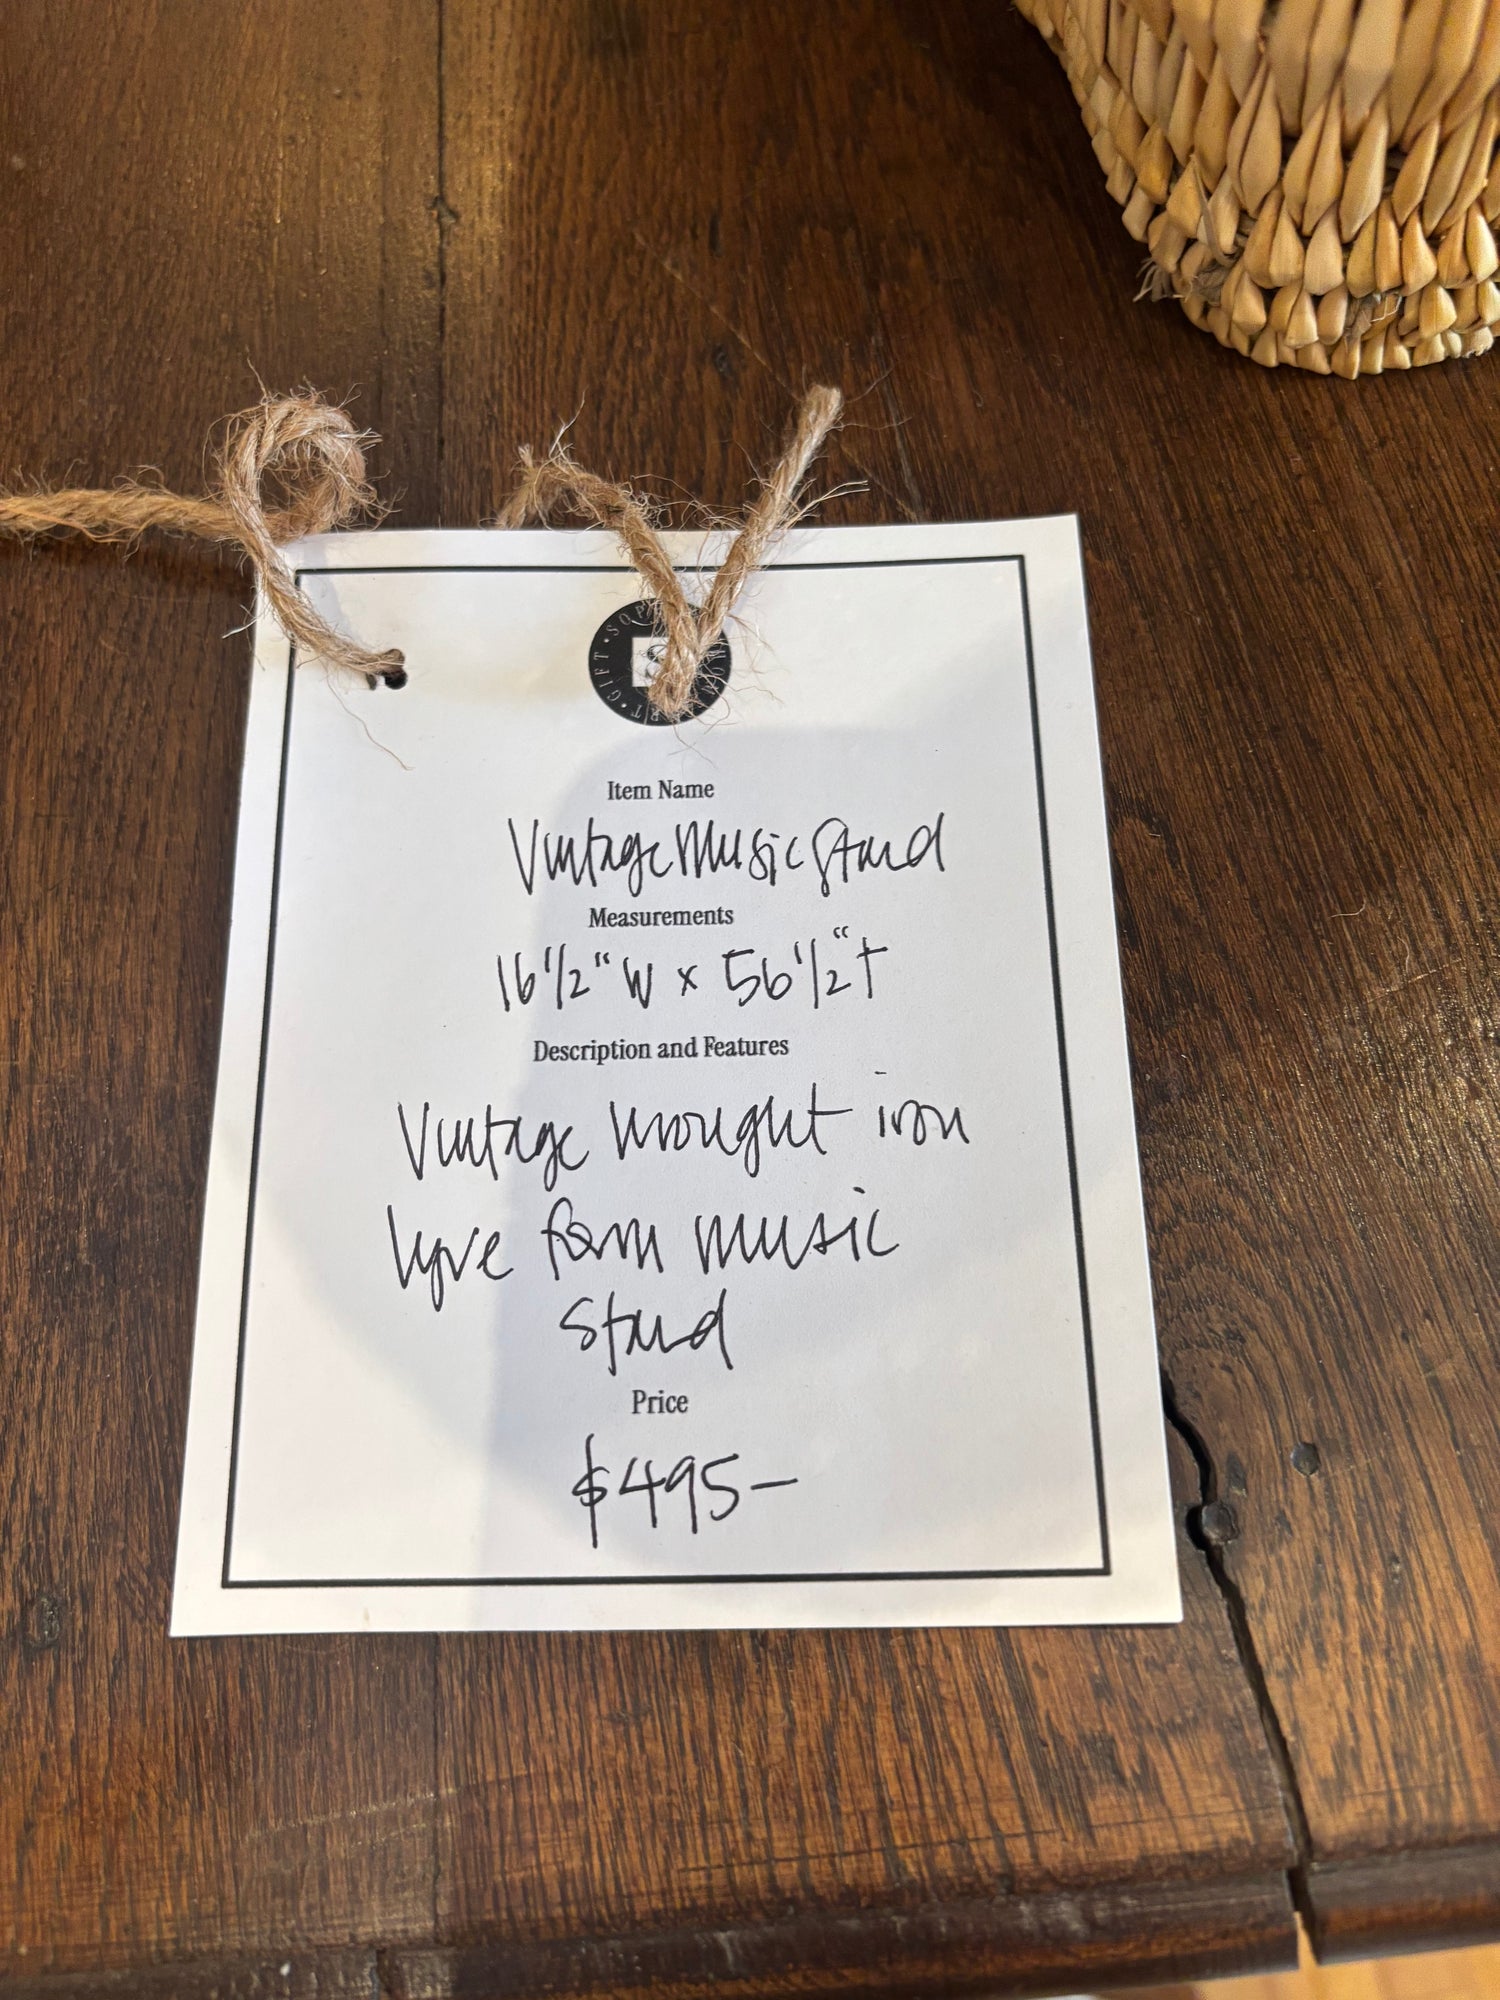 GIFT
Item Name
Vintage Music Stand
Measurements
16 1/2" W x 56 1/2" t
Description and Features
Vintage wrought iron
lyre form music
stand
Price
$495-